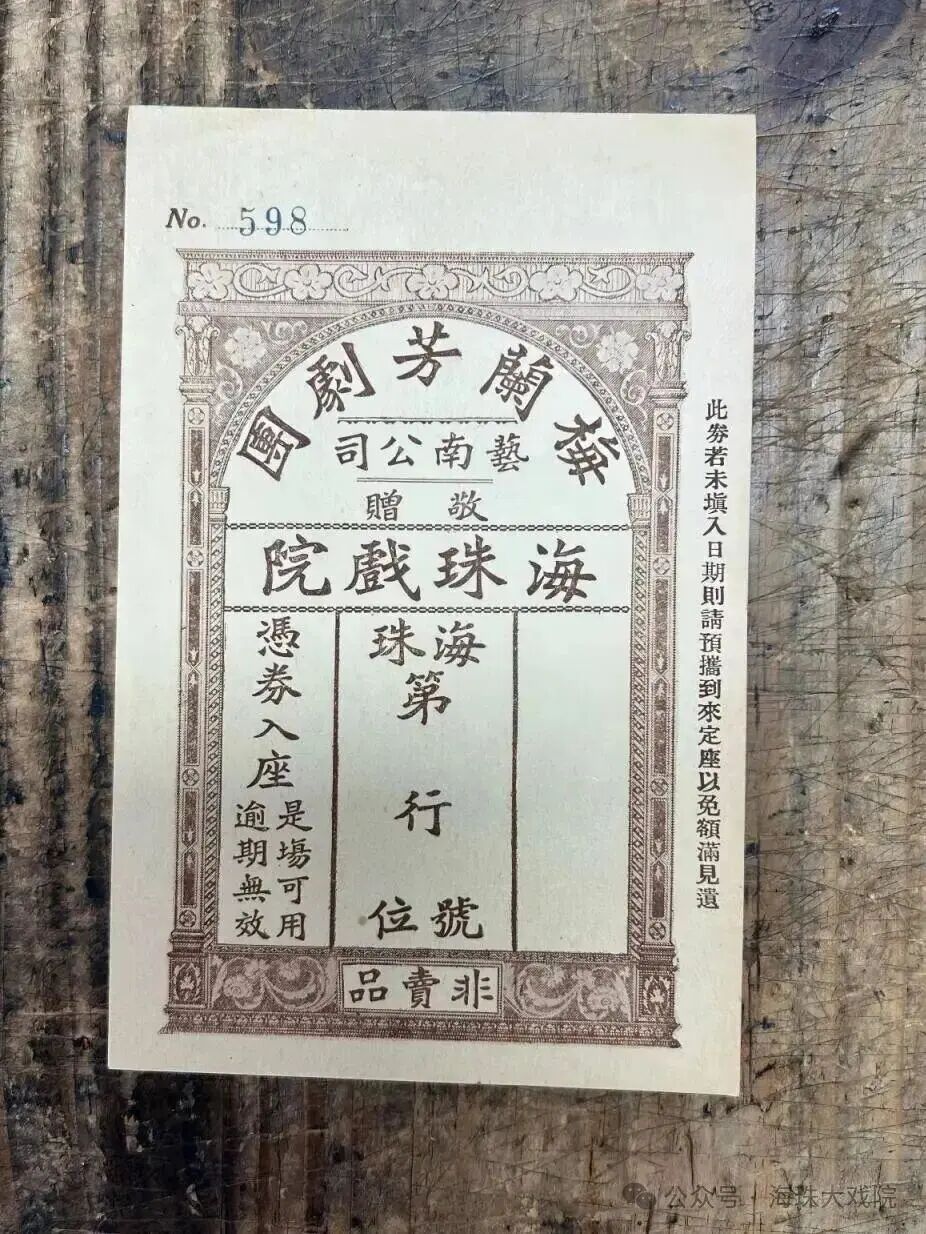 No. 598
梅蘭芳劇團
藝南公司
敬贈
海珠戲院
海珠
第
行
號位
憑券入座
是場可用
逾期無效
非賣品
此券若未塡入日期則請預攜到來定座以免額滿見遺
公众号 海珠大戏院